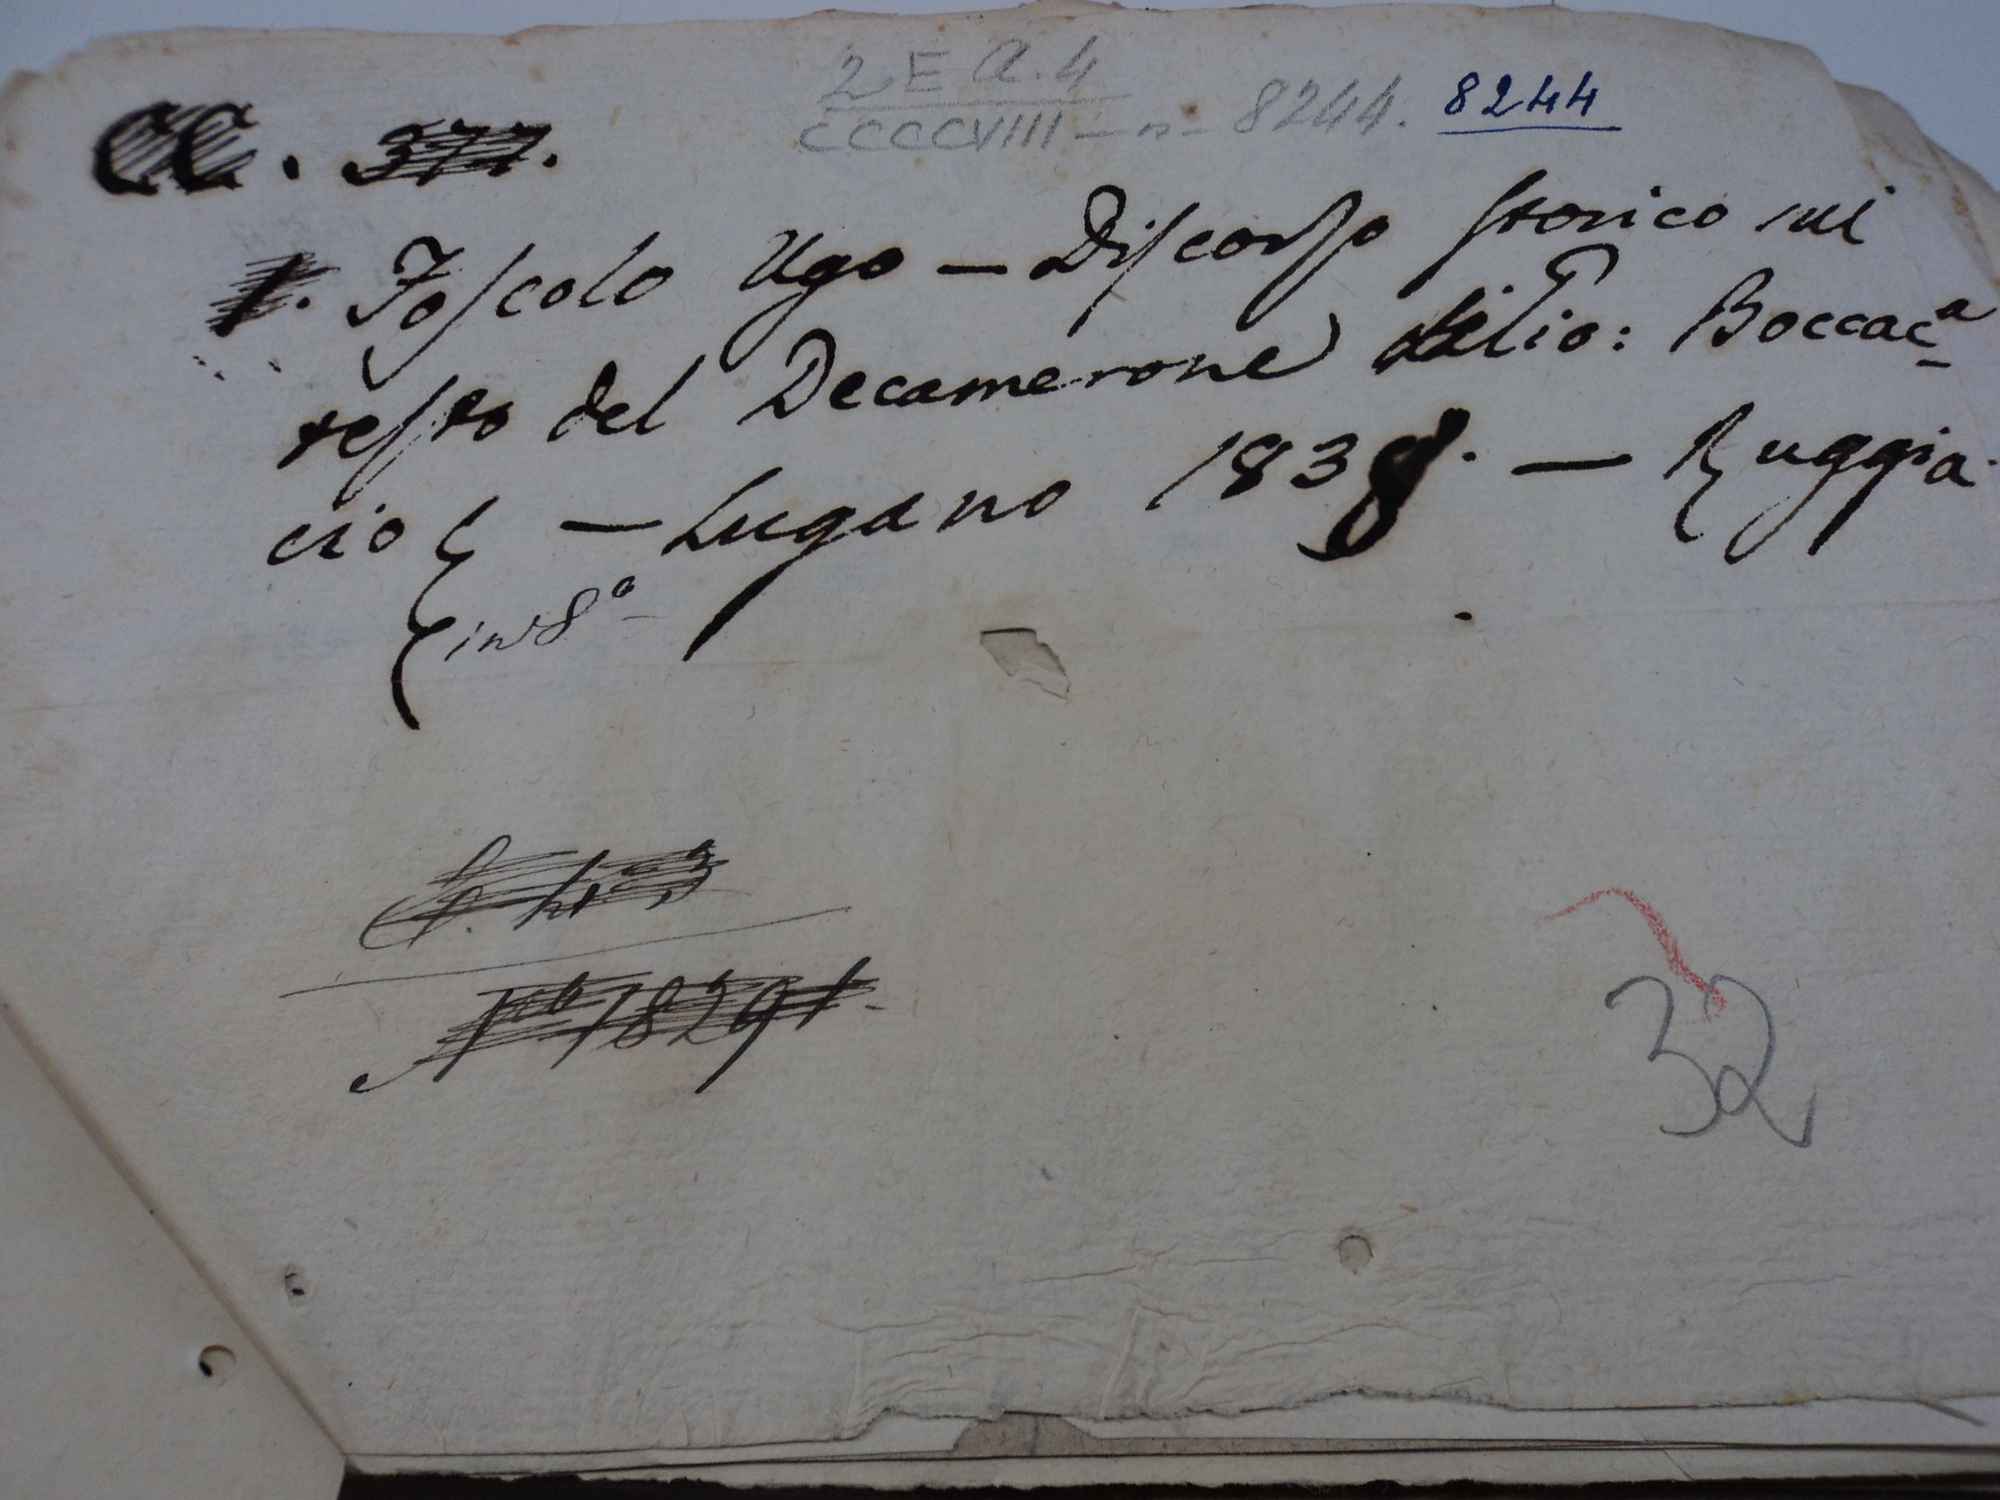 2 E a. 4
CCCCVIII — n — 8244. 8244
CC. 377.
1. Foscolo Ugo — Discorso storico sul
testo del Decamerone di Gio: Boccac
cio — Lugano 1838. — Ruggia
in 8º
Nº 18291.
32